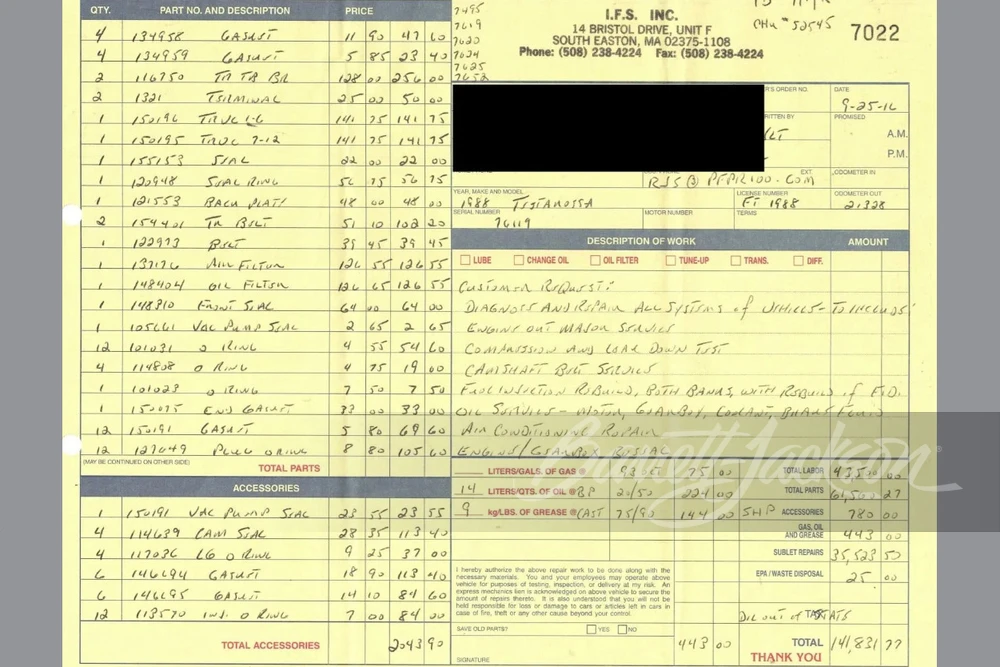 7495
7619
7620
7624
7625
7652
I.F.S. INC.
14 BRISTOL DRIVE, UNIT F
SOUTH EASTON, MA 02375-1108
Phone: (508) 238-4224 Fax: (508) 238-4224
CHK # 52545
7022
QTY. PART NO. AND DESCRIPTION PRICE
4 134958 GASKET 11 90 47 60
4 134959 GASKET 5 85 23 40
2 116750 TN TB BR 128 00 256 00
2 1321 TERMINAL 25 00 50 00
1 150196 TRUC 1-6 141 75 141 75
1 150195 TRUC 7-12 141 75 141 75
1 155153 SEAL 22 00 22 00
1 120948 SEAL RING 56 75 56 75
1 121553 BACK PLATE 48 00 48 00
2 154401 TN BELT 51 10 102 20
1 122973 BELT 39 45 39 45
1 137176 AIR FILTER 126 55 126 55
1 148404 OIL FILTER 126 65 126 55
1 148310 FRONT SEAL 64 00 64 00
1 105661 VAC PUMP SEAL 2 65 2 65
12 101031 O RING 4 55 54 60
4 114808 O RING 4 75 19 00
1 101023 O RING 7 50 7 50
1 150075 END GASKET 33 00 33 00
12 150191 GASKET 5 80 69 60
12 127049 PLUG O RING 8 80 105 60
(MAY BE CONTINUED ON OTHER SIDE) TOTAL PARTS
ACCESSORIES
1 150191 VAC PUMP SEAL 23 55 23 55
4 114639 CAM SEAL 28 35 113 40
4 117036 LG O RING 9 25 37 00
6 146694 GASKET 18 90 113 40
6 146695 GASKET 14 10 84 60
12 113570 INJ O RING 7 00 84 00
TOTAL ACCESSORIES 2043 90
'S ORDER NO. DATE
9-25-16
RITTEN BY PROMISED
A.M.
P.M.
EXT ODOMETER IN
RJS@PFPR100.COM
YEAR, MAKE AND MODEL LICENSE NUMBER ODOMETER OUT
1988 TESTAROSSA FI 1988 21328
SERIAL NUMBER MOTOR NUMBER TERMS
76119
DESCRIPTION OF WORK AMOUNT
LUBE CHANGE OIL OIL FILTER TUNE-UP TRANS. DIFF.
CUSTOMER REQUEST:
DIAGNOSE AND REPAIR ALL SYSTEMS of VEHICLE - TO INCLUDE:
ENGINE OUT MAJOR SERVICE
COMPRESSION AND LEAK DOWN TEST
CAMSHAFT BELT SERVICE
FUEL INJECTION REBUILD, BOTH BANKS, WITH REBUILD of F.D.
OIL SERVICE - MOTOR, GEARBOX, COOLANT, BRAKE FLUID
AIR CONDITIONING REPAIR
ENGINE/GEARBOX RESEAL
Barrett-Jackson
LITERS/GALS. OF GAS @ 93 OCT 75 00 TOTAL LABOR 43,500 00
14 LITERS/QTS. OF OIL @ BP 20/50 224 00 TOTAL PARTS 61,500 27
9 kg/LBS. OF GREASE @ CAST 75/90 144 00 SHP ACCESSORIES 780 00
GAS, OIL AND GREASE 443 00
SUBLET REPAIRS 35,523 50
EPA / WASTE DISPOSAL 25 00
I hereby authorize the above repair work to be done along with the
necessary materials. You and your employees may operate above
vehicle for purposes of testing, inspection, or delivery at my risk. An
express mechanics lien is acknowledged on above vehicle to secure the
amount of repairs thereto. It is also understood that you will not be
held responsible for loss or damage to cars or articles left in cars in
case of fire, theft or any other cause beyond your control.
OUT of STATE
TAX
SAVE OLD PARTS? YES NO
443 00 TOTAL 141,831 77
SIGNATURE THANK YOU